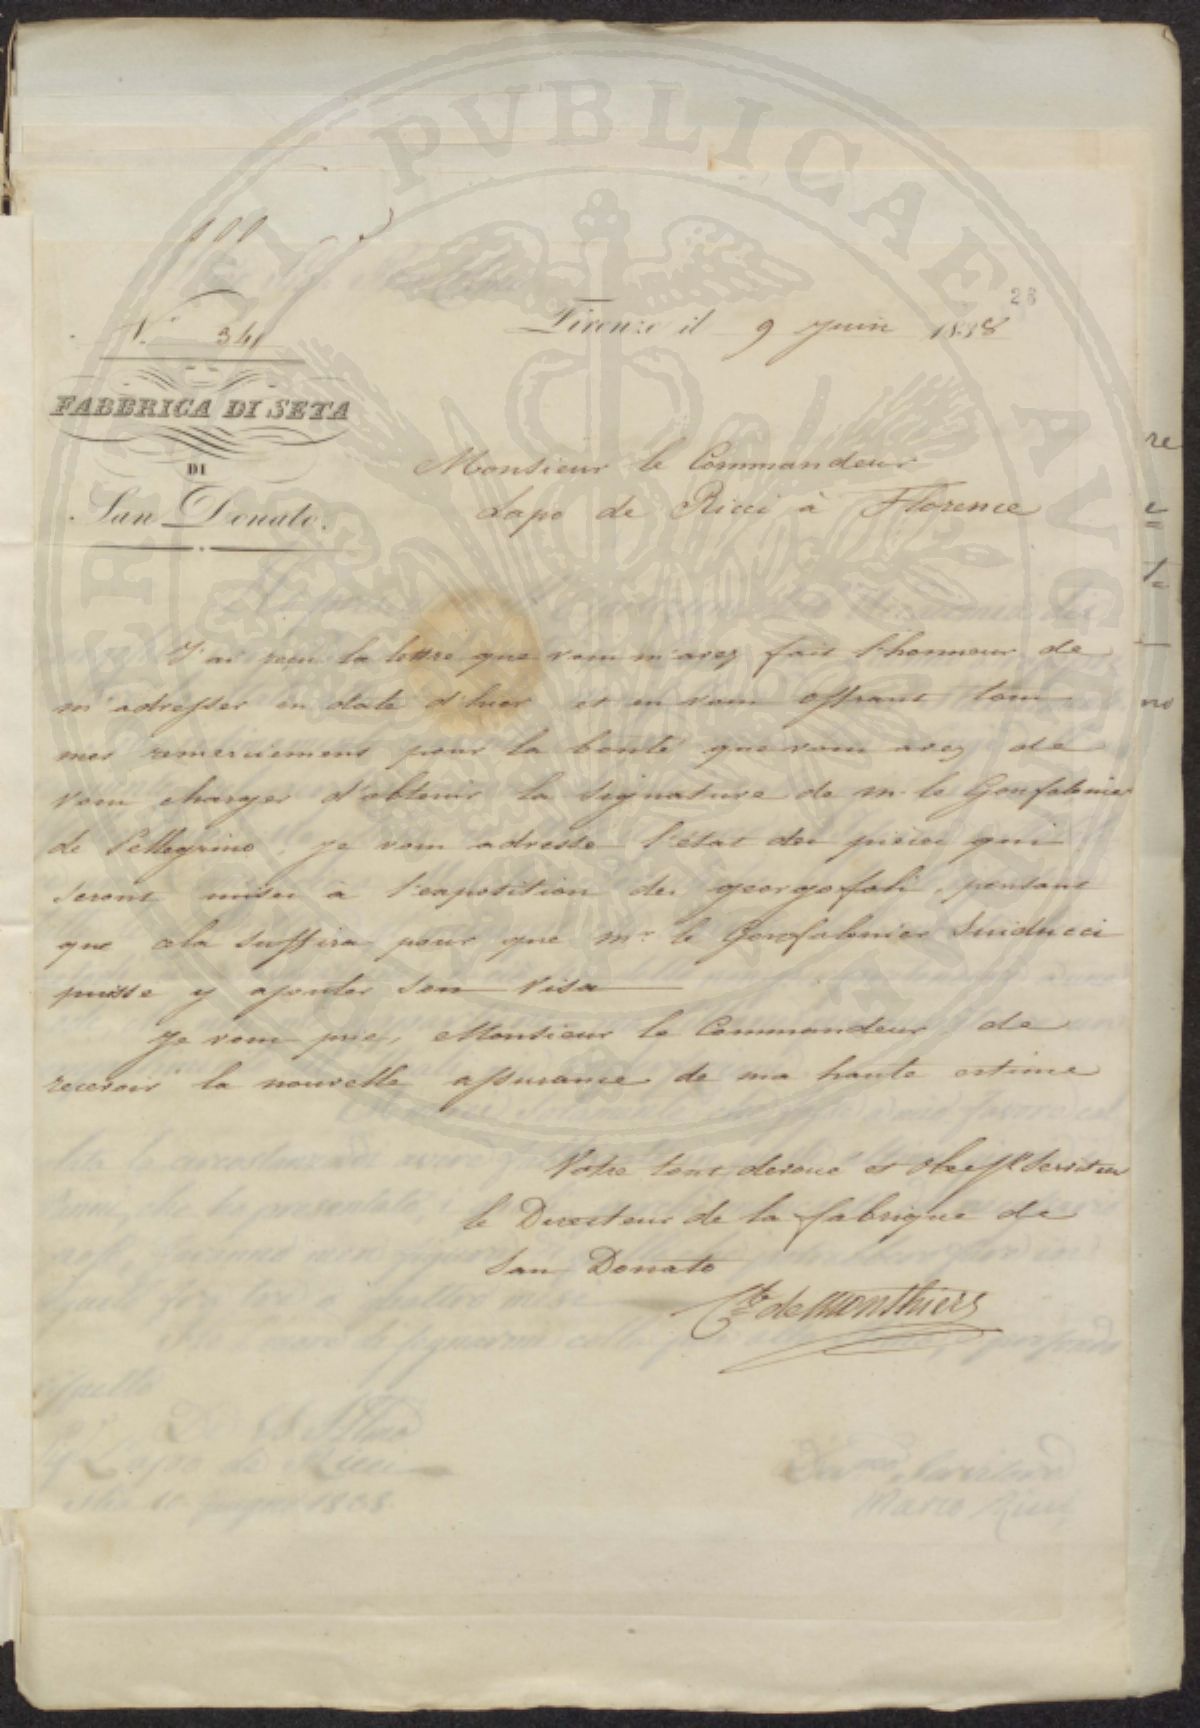 28
N.° 341
Firenze il 9 Juin 1838
FABBRICA DI SETA
DI
San Donato.
Monsieur le Commandeur
Lapo de Ricci à Florence
J'ai recu la lettre que vous m'avez fait l'honneur de
m'adresser en date d'hier et en vous offrant tous
mes remerciemens pour la bonté que vous avez de
vous charger d'obtenir la signature de mr le Gonfalonier
de Pellegrino. Je vous adresse l'état des pièces qui
seront mises à l'exposition des georgofoli, pensant
que cela suffira pour que mr. le Gonfalonier
puisse y ajouter son Visa
Je vous prie, Monsieur le Commandeur, de
recevoir la nouvelle assurance de ma haute estime
Votre tout devoué et obeisst Serviteur
le Directeur de la fabrique de
San Donato
Cte de Monthiers
PUBLICAE